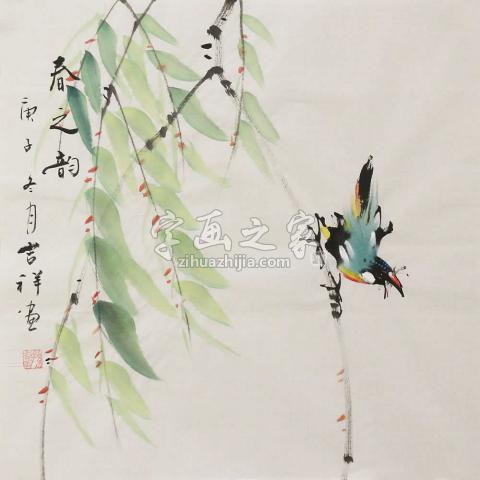 春之韵
庚子冬月吉祥画
字画之家
zihuazhijia.com